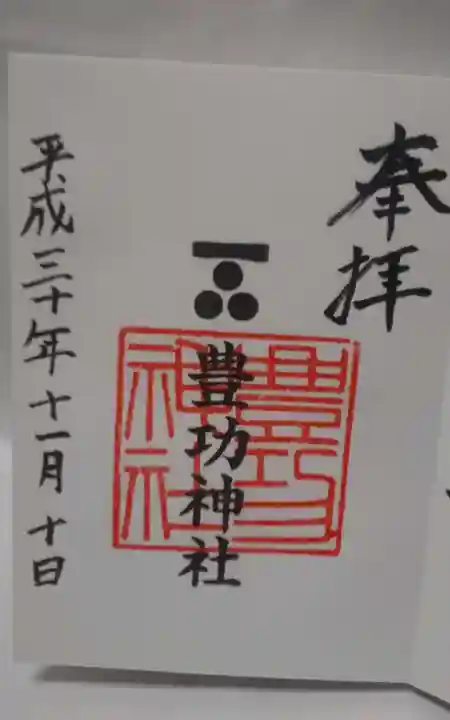 奉拝
豊功神社
豊功神社
平成三十年十一月十日